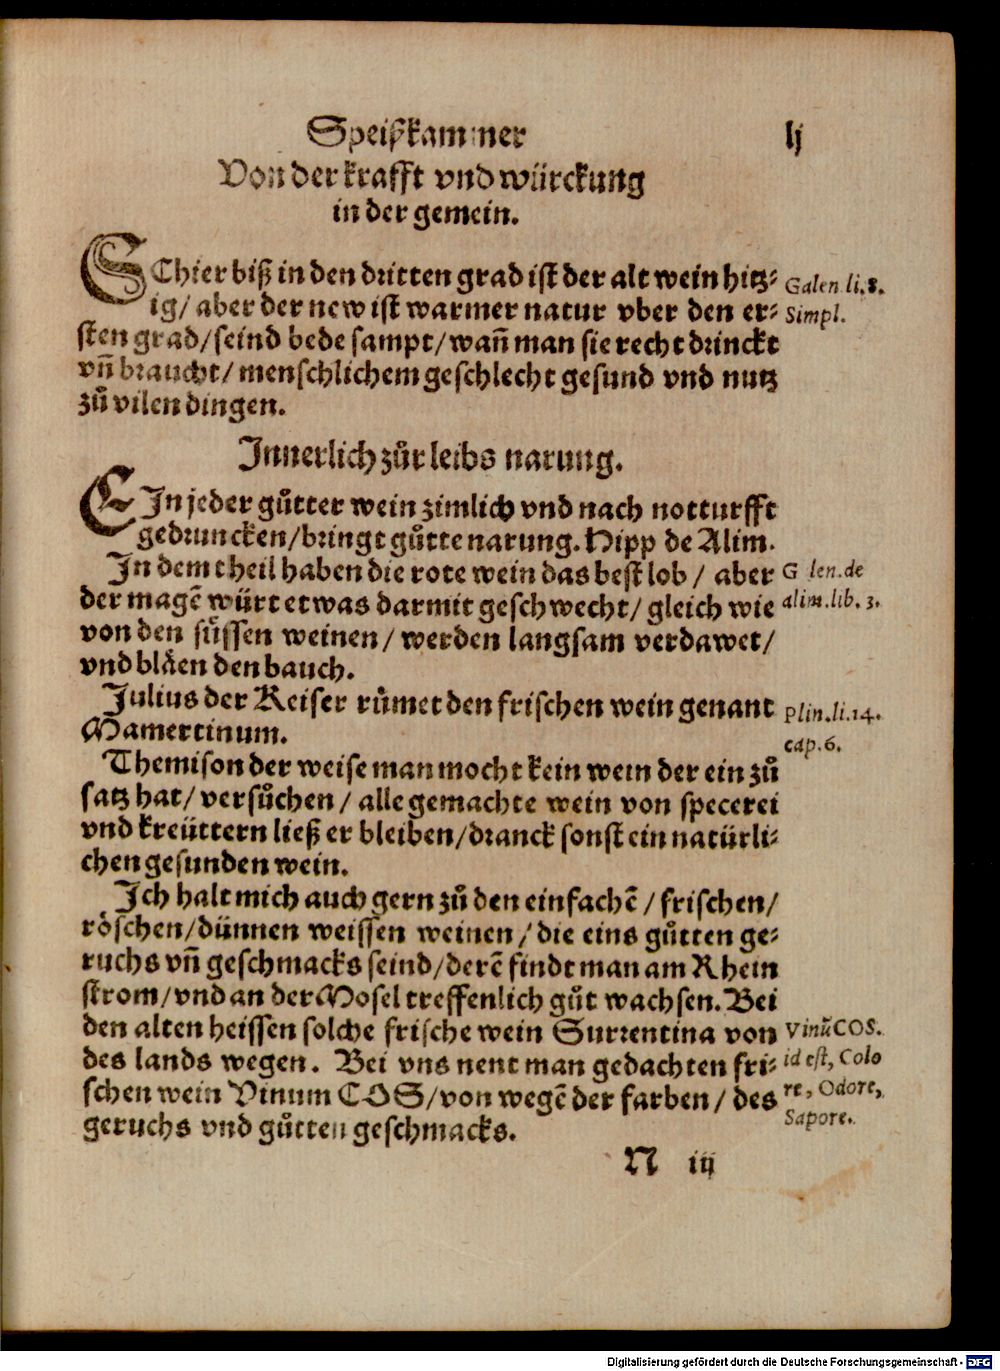 Speißkammer lj
Von der krafft vnd würckung
in der gemein.
SChier biß in den dritten grad ist der alt wein hitz⸗
ig/ aber der new ist warmer natur vber den er⸗
sten grad/ seind bede sampt/ wañ man sie recht drinckt
vñ braucht/ menschlichem geschlecht gesund vnd nutz
zů vilen dingen.
Galen li. 8.
Simpl.
Innerlich zůr leibs narung.
EIn jeder gůtter wein zimlich vnd nach notturfft
gedruncken/ bringt gůtte narung. Hipp de Alim.
In dem theil haben die rote wein das best lob/ aber
der magẽ würt etwas darmit geschwecht/ gleich wie
von den süssen weinen/ werden langsam verdawet/
vnd bläen den bauch.
G len. de
alim. lib. 3.
Julius der Keiser růmet den frischen wein genant
Mamertinum.
Plin. li. 14.
cap. 6.
Themison der weise man mocht kein wein der ein zů
satz hat/ versůchen/ alle gemachte wein von specerei
vnd kreüttern ließ er bleiben/ dranck sonst ein natürli⸗
chen gesunden wein.
Ich halt mich auch gern zů den einfachẽ/ frischen/
röschen/ dünnen weissen weinen/ die eins gůtten ge⸗
ruchs vñ geschmacks seind/ derẽ findt man am Rhein
strom/ vnd an der Mosel treffenlich gůt wachsen. Bei
den alten heissen solche frische wein Surrentina von
des lands wegen. Bei vns nent man gedachten fri⸗
schen wein Vinum COS/ von wegẽ der farben/ des
geruchs vnd gůtten geschmacks.
Vinũ COS.
id est, Colo
re, Odore,
Sapore.
N iij
Digitalisierung gefördert durch die Deutsche Forschungsgemeinschaft - DFG